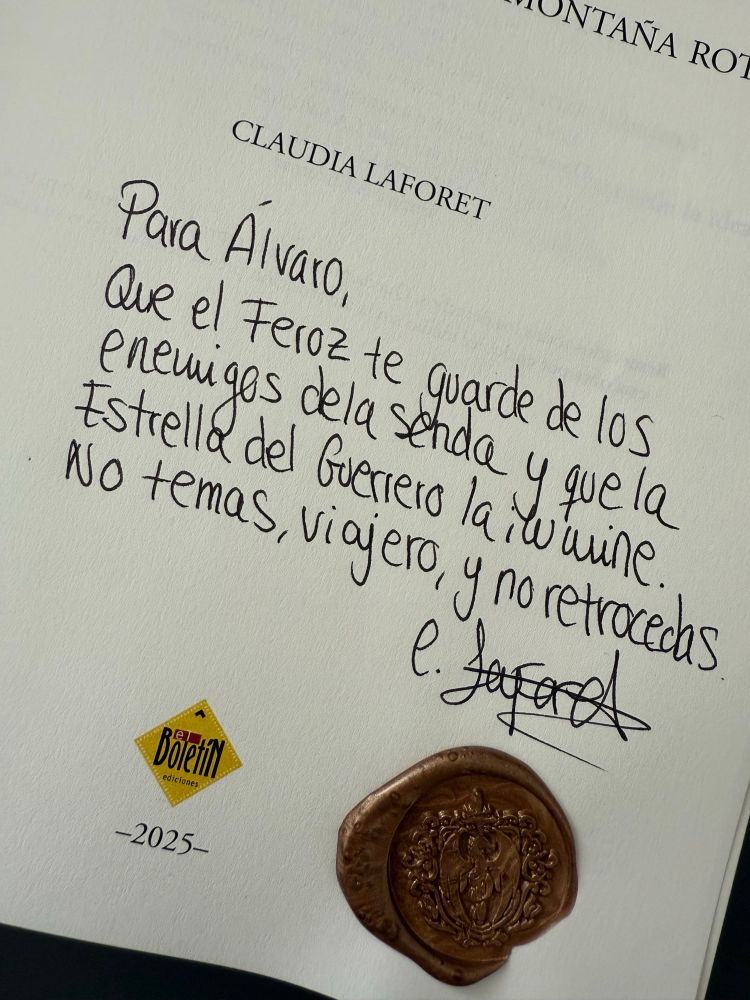 MONTAÑA ROT
CLAUDIA LAFORET
Para Álvaro,
Que el Feroz te guarde de los
enemigos de la senda y que la
Estrella del Guerrero la ilumine.
No temas, viajero, y no retrocedas
C. Laforet
el
Boletín
ediciones
–2025–